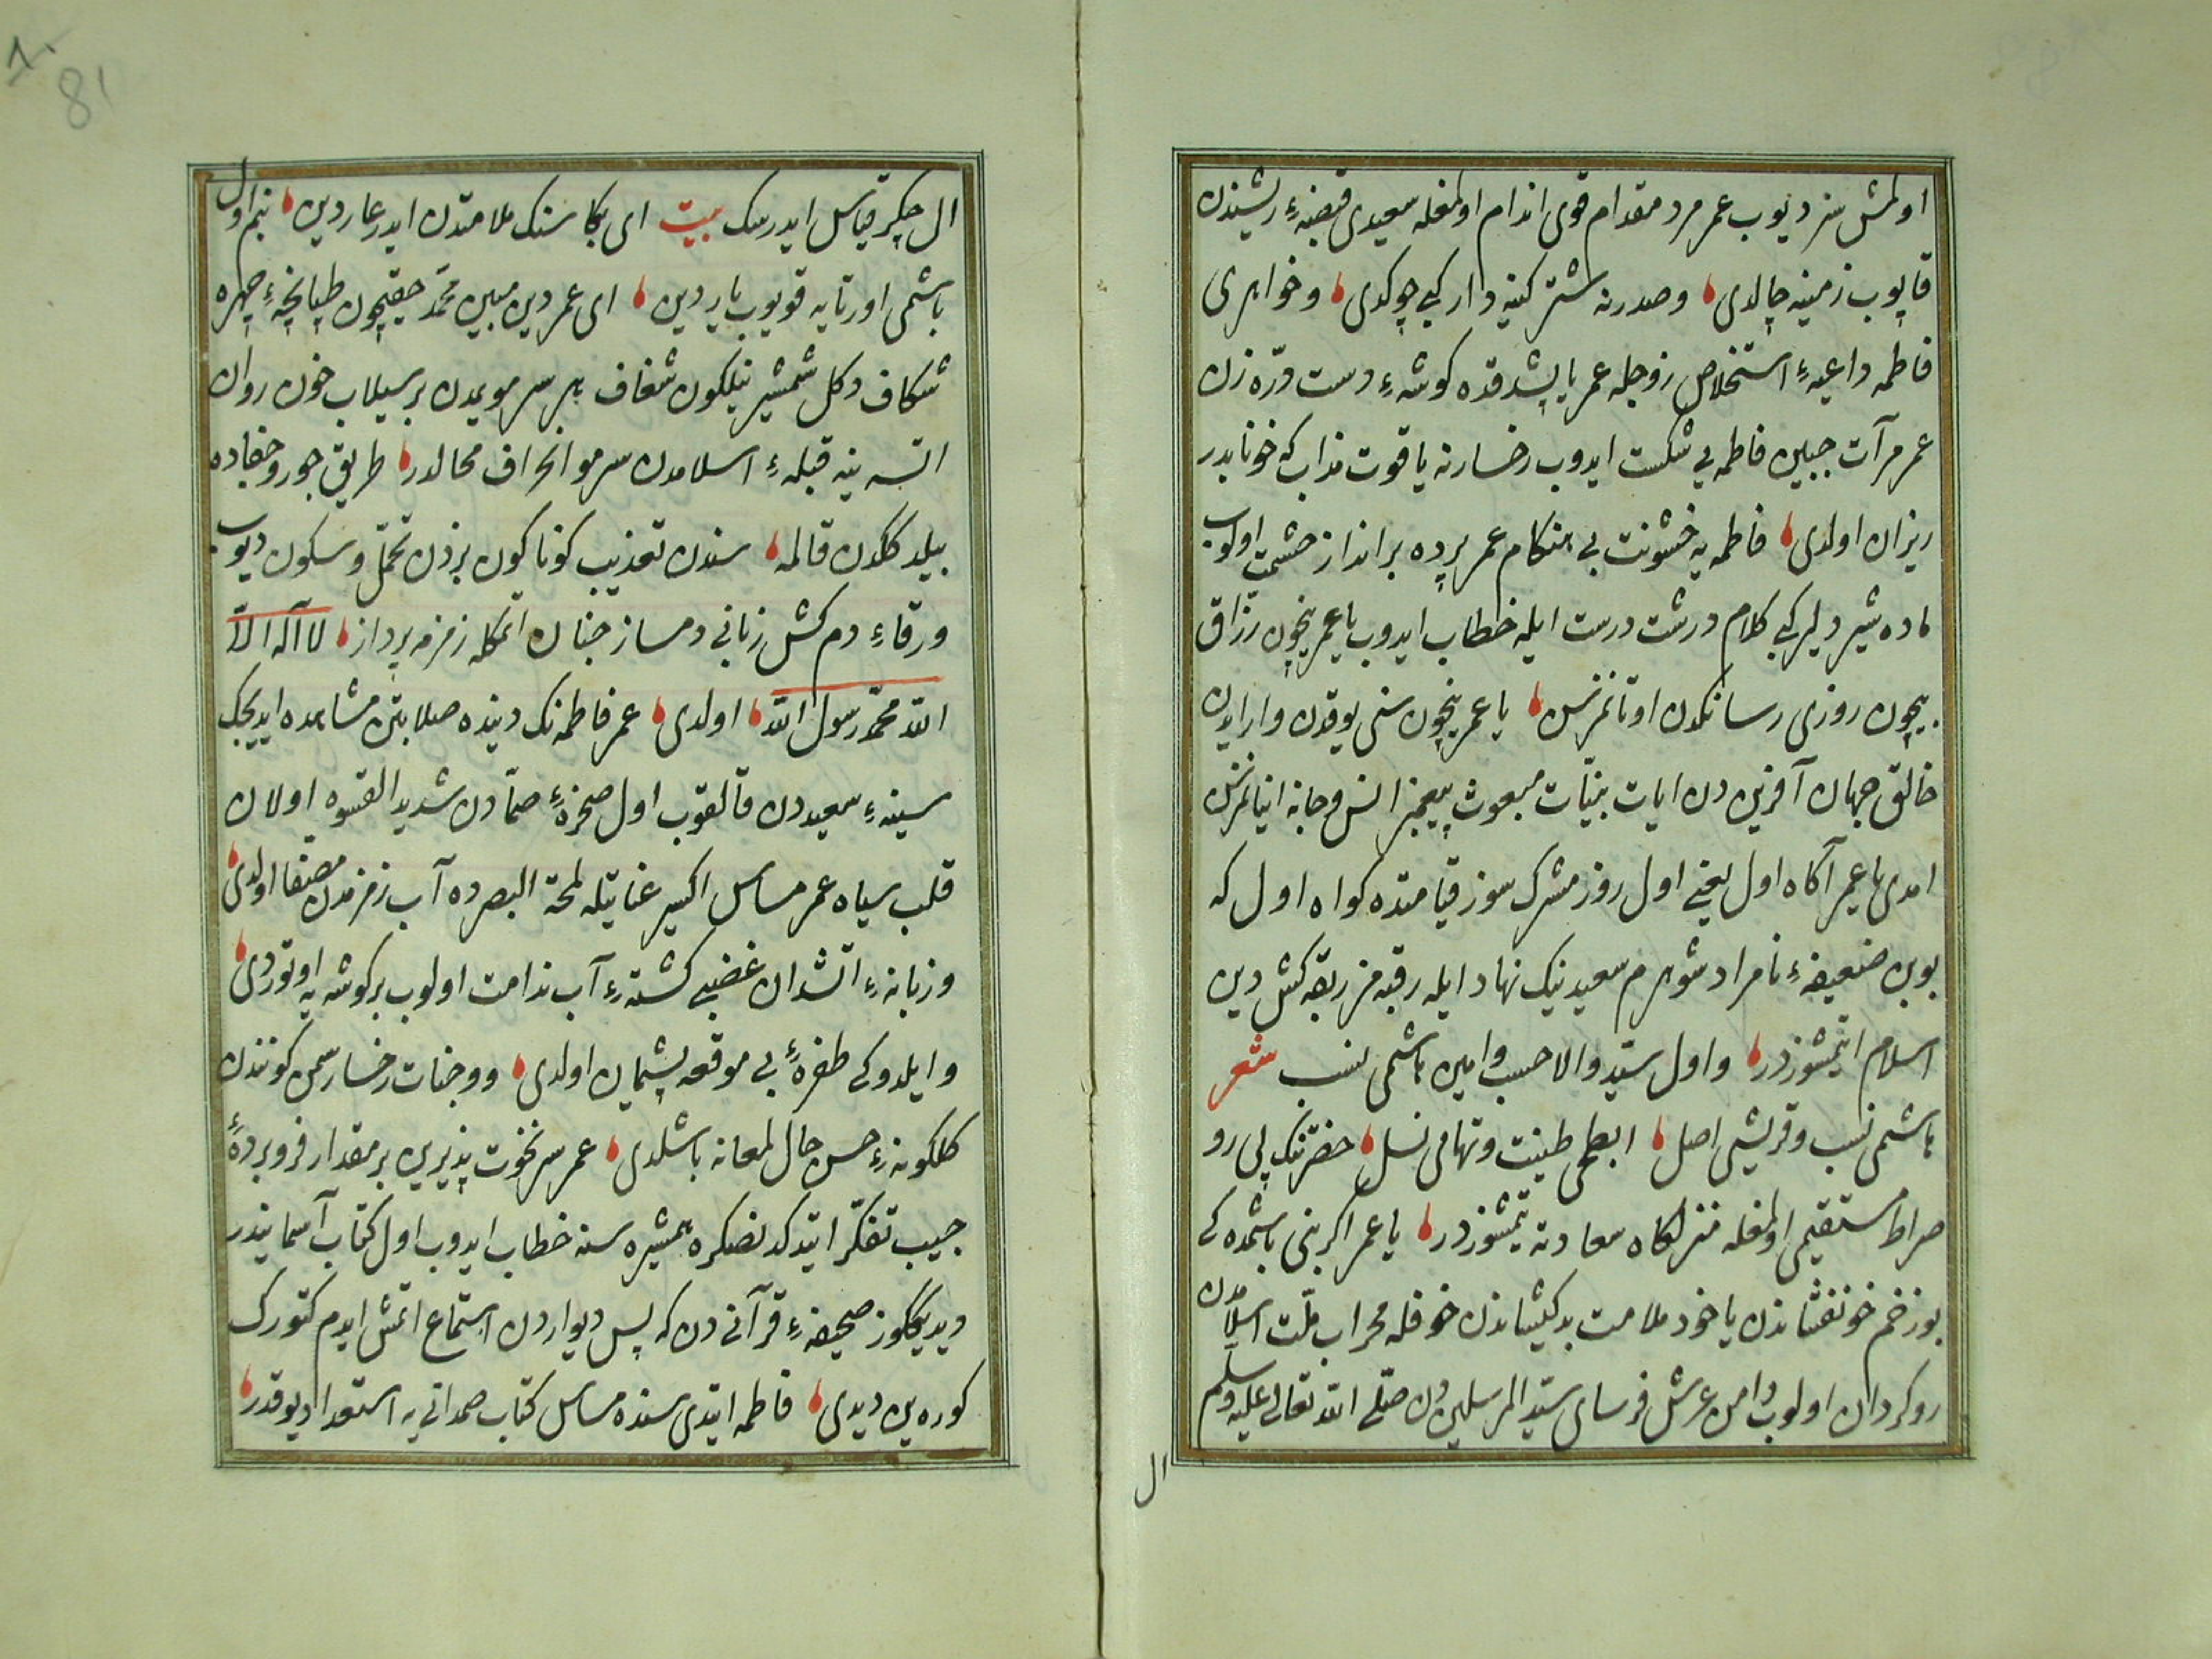 اولمش سز ديوب عمر مرد مقدام قوی اندام اولمغله سعيدی قبضهٔ ريشندن
قاپوب زمينه چالدی وصدرنه شتر كينه دار كبی چوكدی وخواهری
فاطمه داعيهٔ استخلاص زوجله عمره ياپشدقده كوشهٔ دست درّه زن
عمر مرآت جبين فاطمه يی شكست ايدوب رخسارنه ياقوت مذاب كه خونابدر
ريزان اولدی فاطمه يه خشونت بی هنكام عمر پرده برانداز حشمت اولوب
ماده شير دلير كبی كلام درشت درست ايله خطاب ايدوب يا عمر نيچون رزاق
بيچون روزی رساندن اوتانمزسن يا عمر نيچون سنی يوقدن وار ايدن
خالق جهان آفرين دن ايات بيّنات مبعوث پيغمبر انس وجانه اينانمزسن
امدی يا عمر آكاه اول يعنی اول روز مشرك سوز قيامتده كواه اول كه
بوبن ضعيفهٔ نامراد شوهرم سعيد نيك نهاد ايله رقبه مز ربقه كش دين
اسلام ايتمشزدر واول سيّد والا حسب وامين هاشمی نسب شعر
هاشمی نسب وقريشی اصل ابطحی طينت وتهامی نسل حضرتنك پی رو
صراط مستقيمی اولمغله منزلكاه سعادته يتمشزدر يا عمر اكر بنی باشمده كی
بو زخم خونفشاندن ياخود ملامت بدكيشاندن خوفله محراب ملّت اسلامدن
روكردان اولوب دامن عرش فرسای سيّد المرسلين دن صلّی الله تعالی عليه وسلم
ال
٨٠
81
ال چكر قياس ايدرسك بيت ای بكا سنك ملامتدن ايدر عار دين بنم اول
باشمی اورتايه قويوب يار دين ای عمر دين مبين محمّد حقيچون طپانچهٔ چهره
شكاف دكل شمشير نيلكون شغاف هر سر مويمدن بر سيلاب خون روان
اتسه ينه قبلهٔ اسلامدن سر مو انحراف محالدر طريق جور وجفاده
بيلدككدن قالمه سندن تعذيب كوناكون بزدن تحمّل وسكون ديوب
ورقاءِ دم كش زبانی دمساز جنان اتمكله زمزمه پرداز لا اله الّا
الله محمّد رسول الله اولدی عمر فاطمه نك دينده صلابتن مشاهده ايديجك
سينهٔ سعيددن قالقوب اول صخرهٔ صمّادن شديد القسوه اولان
قلب سياه عمر مساس اكسير عنايتله لمحة البصرده آب زمزمدن مصفّا اولدی
وزبانهٔ اتشدان غضبی كشتهٔ آب ندامت اولوب بر كوشه يه اوتوردی
وايلدوكی طفرهٔ بی موقعه پشيمان اولدی ووجنات رخسار سمن كونندن
كلكونهٔ حسن حال لمعانه باشلدی عمر سر نخوت پذيرين بر مقدار فرو بردهٔ
جيب تفكّر ايتدكدنصكره همشيره سنه خطاب ايدوب اول كتاب آسمانيدر
ديديككوز صحيفهٔ قرآنی دن كه پس ديواردن استماع اتمش ايدم كتورك
كوره ين ديدی فاطمه ايتدی سنده مساس كتاب صمدانی يه استعداد يوقدر